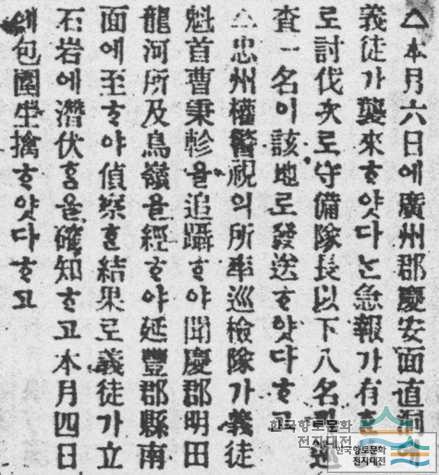 △本月六日에廣州郡慶安面直洞에
義徒가襲來ᄒᆞ얏다ᄂᆞᆫ急報가有ᄒᆞᆷ으
로討伐次로守備隊長以下八名과巡
査一名이該地로發送ᄒᆞ얏다ᄒᆞ고
△忠州權警視의所率巡檢隊가義徒
魁首曹秉軫을追躡ᄒᆞ야聞慶郡明田
龍河所及鳥嶺을經ᄒᆞ야延豐郡縣南
面에至ᄒᆞ야偵察ᄒᆞᆫ結果로義徒가立
石岩에潛伏ᄒᆞᆷ을確知ᄒᆞ고本月四日
에包圍生擒ᄒᆞ얏다ᄒᆞ고
한국향토문화
전자대전
한국향토문화
전자대전